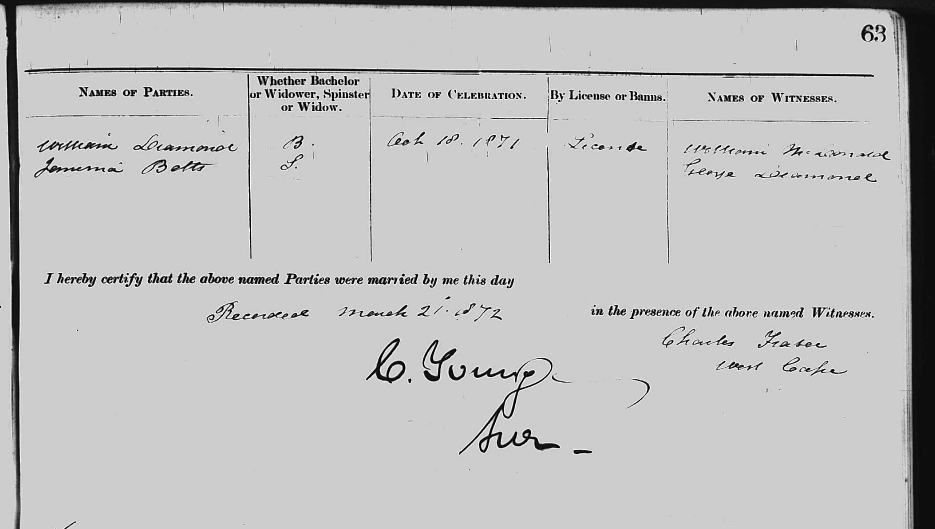 63
NAMES OF PARTIES.
Whether Bachelor
or Widower, Spinster
or Widow.
DATE OF CELEBRATION.
By License or Banns.
NAMES OF WITNESSES.
William Diamond
B.
Oct 18. 1871
License
William McDonald
Jemima Betts
S.
George Diamond
I hereby certify that the above named Parties were married by me this day
Recorded March 21. 1872
in the presence of the above named Witnesses.
Charles Fraser
West Cape
C. Young